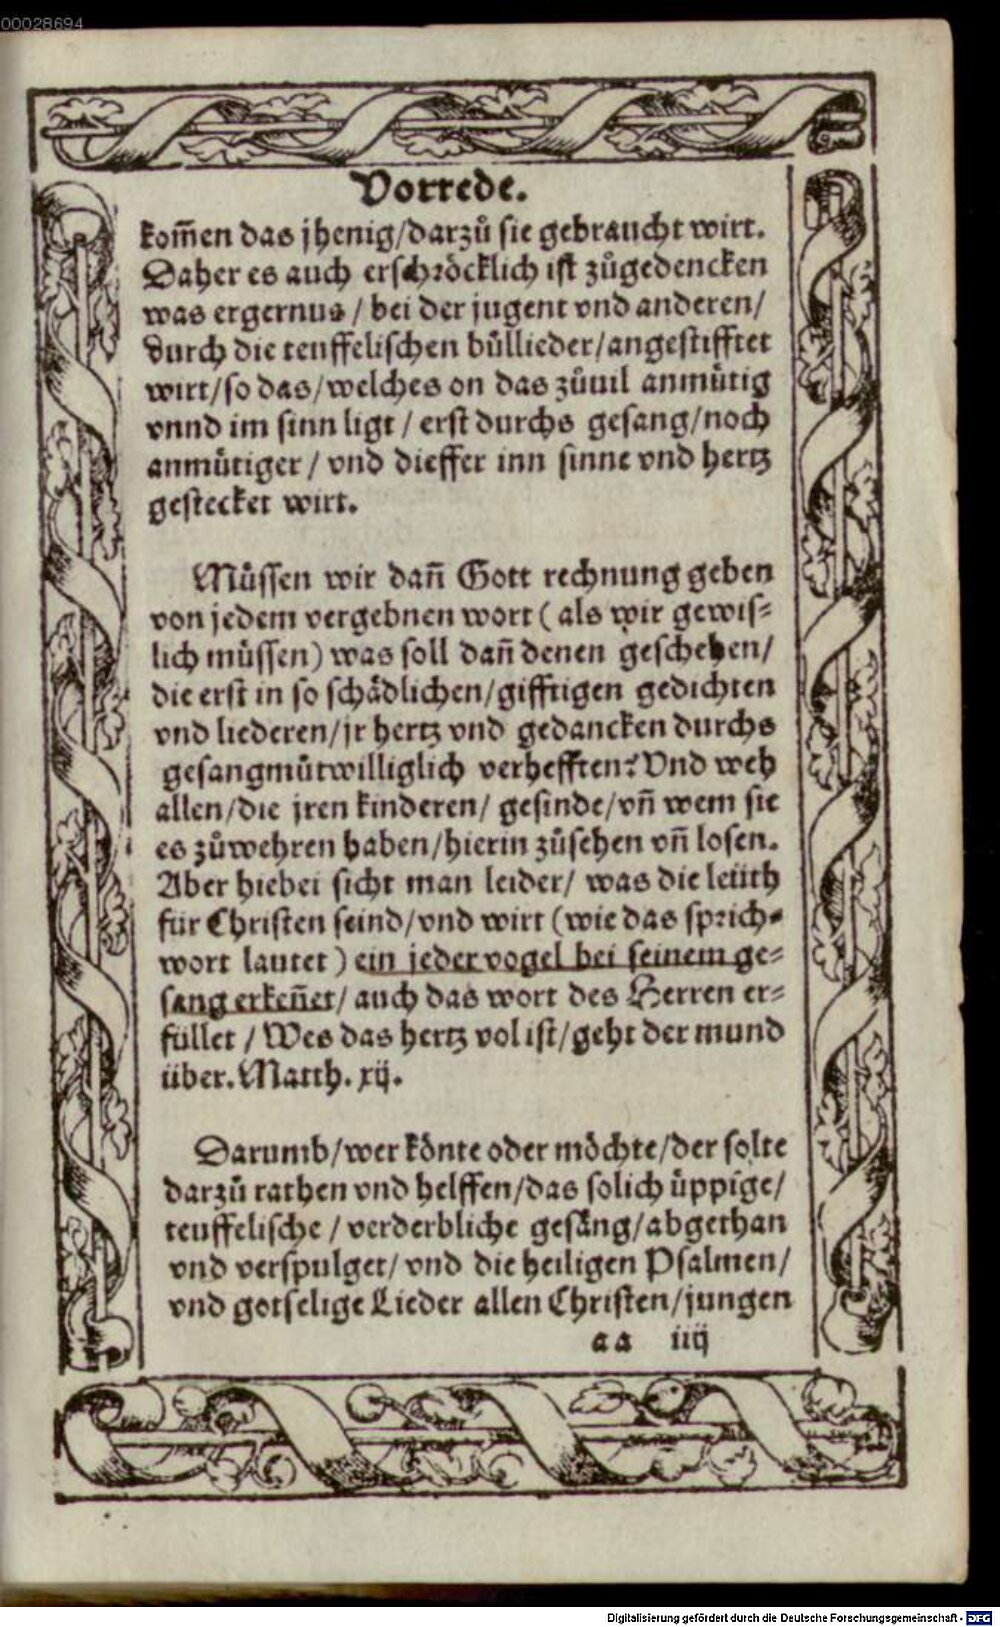 00028694
Vorrede.
kom̃en das jhenig/darzů sie gebraucht wirt.
Daher es auch erschröcklich ist zůgedencken
was ergernus / bei der jugent vnd anderen/
durch die teuffelischen bůllieder/angestifftet
wirt/so das/welches on das zůuil anmůtig
vnnd im sinn ligt / erst durchs gesang/noch
anmůtiger / vnd dieffer inn sinne vnd hertz
gestecket wirt.
Müssen wir dañ Gott rechnung geben
von jedem vergebnen wort ( als wir gewis-
lich müssen) was soll dañ denen geschehen/
die erst in so schädlichen/gifftigen gedichten
vnd liederen/jr hertz vnd gedancken durchs
gesangmůtwilliglich verhefften? Vnd weh
allen/die jren kinderen/ gesinde/vñ wem sie
es zůwehren haben/hierin zůsehen vñ losen.
Aber hiebei sicht man leider/ was die leüth
für Christen seind/vnd wirt (wie das sprich-
wort lautet) ein jeder vogel bei seinem ge-
sang erkeñet/ auch das wort des Herren er-
füllet / Wes das hertz vol ist/geht der mund
über. Matth. xij.
Darumb/wer könte oder möchte/der solte
darzů rathen vnd helffen/das solich üppige/
teuffelische / verderbliche gesäng/abgethan
vnd verspulget/ vnd die heiligen Psalmen/
vnd gotselige Lieder allen Christen/jungen
aa iiij
Digitalisierung gefördert durch die Deutsche Forschungsgemeinschaft - DFG